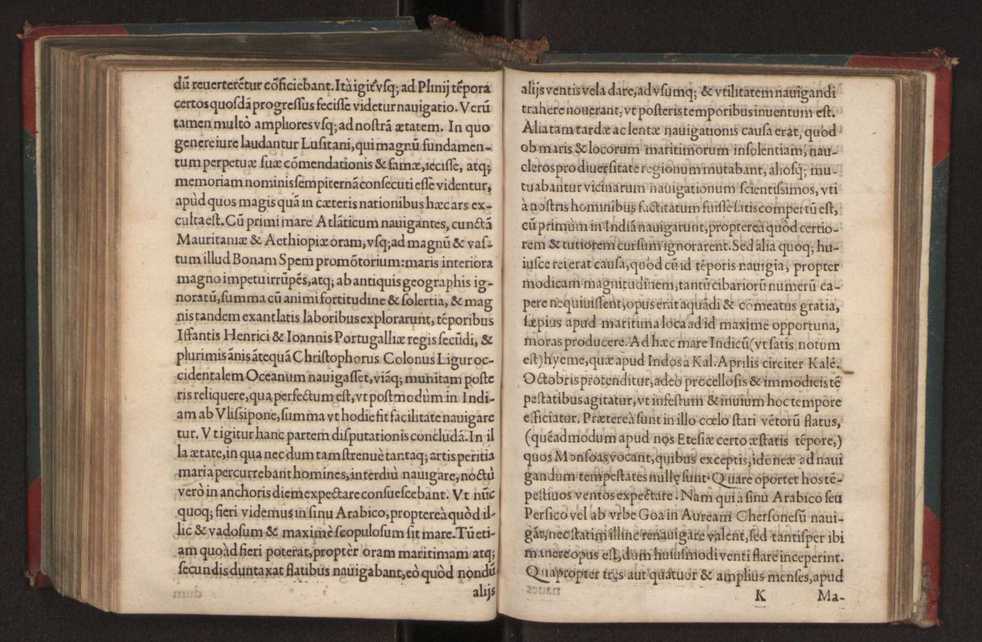 dũ reuerterẽtur cõficiebant. Ità igit᷑ vsq; ad Plinij tẽpora
certos quosdã progressus fecisse videtur nauigatio. Verũ
tamen multò ampliores vsq; ad nostrã ætatem. In quo
genere iure laudantur Lusitani, qui magnũ fundamen-
tum perpetuæ suæ cõmendationis & famæ, iecisse, atq;
memoriam nominis sempiternã consecuti esse videntur,
apùd quos magis quã in cæteris nationibus hæc ars ex-
culta est. Cũ primi mare Atlãticum nauigantes, cunctã
Mauritaniæ & Aethiopiæ oram, vsq; ad magnũ & vas-
tum illud Bonam Spem promõtorium: maris interiora
magno impetu irrũpẽs, atq; ab antiquis geographis ig-
noratũ, summa cũ animi fortitudine & solertia, & mag
nis tandem exantlatis laboribus explorarunt, tẽporibus
Iffantis Henrici & Ioannis Portugalliæ regis secũdi, &
plurimis ãnis ãtequã Christophorus Colonus Ligur oc-
cidentalem Oceanum nauigasset, viãq; munitam poste
ris reliquere, qua perfectum est, vt postmodùm in Indi-
am ab Vlissipone, summa vt hodie fit facilitate nauigare
tur. Vt igitur hanc partem disputationis concludã. In il
la ætate, in qua nec dum tam strenuè tantaq; artis peritia
maria percurrebant homines, interdiù nauigare, noctù
verò in anchoris diem expectare consuescebant. Vt nũc
quoq; fieri videmus in sinu Arabico, proptereà quòd il-
lic & vadosum & maximè scopulosum sit mare. Tũ eti-
am quoàd fieri poterat, proptèr oram maritimam atq;
secundis duntaxat flatibus nauigabant, eò quòd nondũ
alijs
alijs ventis vela dare, ad vsumq; & vtilitatem nauigandi
trahere nouerant, vt posteris temporibus inuentum est.
Alia tam tardæ ac lentæ nauigationis causa erat, quòd
ob maris & locorum maritimorum insolentiam, nau-
cleros pro diuersitate regionum mutabant, aliosq; mu-
tuabantur vicinarum nauigationum scientissimos, vti
à nostris hominibus factitatum fuisse satis compertũ est,
cũ primùm in Indiã nauigarunt, proptereà quòd certio-
rem & tutiorem cursum ignorarent. Sed alia quoq; hu-
iusce rei erat causa, quòd cũ id tẽporis nauigia, propter
modicam magnitudinem, tantũ cibariorũ numerũ ca-
pere nequiuissent, opus erat aquãdi & cõmeatus gratia,
sæpius apud maritima loca ad id maximè opportuna,
moras producere. Ad hæc mare Indicũ (vt satis notum
est) hyeme, quæ apud Indos à Kal. Aprilis circiter Kalẽ.
Octobris protenditur, adeò procellosis & immodicis tẽ
pestatibus agitatur, vt infestum & inuium hoc tempore
efficiatur. Prætereà sunt in illo cœlo stati vẽtorũ flatus,
(quẽadmodum apud nos Etesiæ certo æstatis tẽpore,)
quos Monsoas vocant, quibus exceptis, idoneæ ad naui
gandum tempestates nullę sunt. Quare oportet hos tẽ-
pestiuos ventos expectare. Nam qui à sinu Arabico seu
Persico vel ab vrbe Goa in Auream Chersonesũ naui-
gãt, nec statim illinc renauigare valent, sed tantisper ibi
manere opus est, dum huiusmodi venti flare inceperint.
Quapropter tres aut quatuor & amplius menses, apud
K Ma-